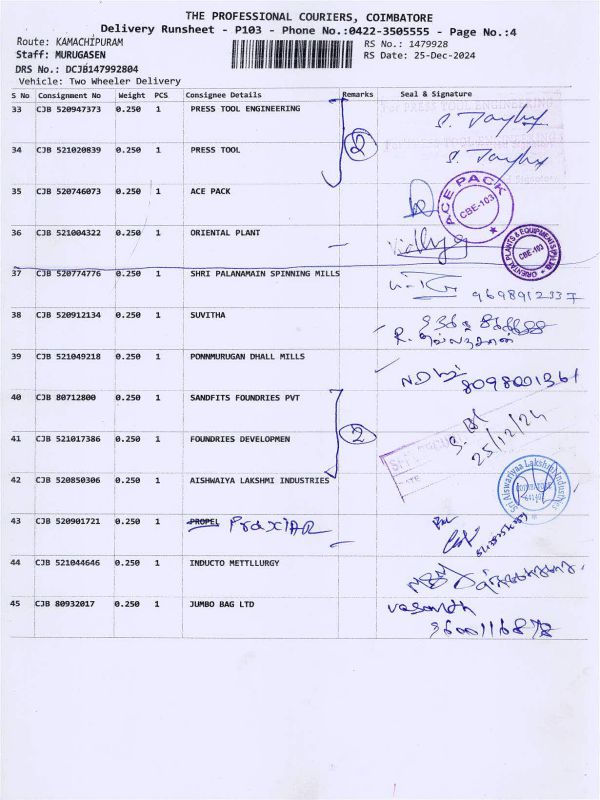 THE PROFESSIONAL COURIERS, COIMBATORE
Delivery Runsheet - P103 - Phone No.:0422-3505555 - Page No.:4
Route: KAMACHIPURAM RS No.: 1479928
Staff: MURUGASEN RS Date: 25-Dec-2024
DRS No.: DCJB147992804
Vehicle: Two Wheeler Delivery
S No Consignment No Weight PCS Consignee Details Remarks Seal & Signature
33 CJB 520947373 0.250 1 PRESS TOOL ENGINEERING
For PRESS TOOL ENGINEERING
2
34 CJB 521020839 0.250 1 PRESS TOOL
35 CJB 520746073 0.250 1 ACE PACK
ACE PACK CBE-103
36 CJB 521004322 0.250 1 ORIENTAL PLANT
Vidhya
ORIENTAL PLANTS & EQUIPMENTS (P) LTD CBE-103
37 CJB 520774776 0.250 1 SHRI PALANAMAIN SPINNING MILLS
38 CJB 520912134 0.250 1 SUVITHA
39 CJB 521049218 0.250 1 PONNMURUGAN DHALL MILLS
8098001361
40 CJB 80712800 0.250 1 SANDFITS FOUNDRIES PVT
2
41 CJB 521017386 0.250 1 FOUNDRIES DEVELOPMEN
25/12/24
42 CJB 520850306 0.250 1 AISHWAIYA LAKSHMI INDUSTRIES
Sri Aiswariyaa Lakshmi Industries
43 CJB 520901721 0.250 1 PROPEL
44 CJB 521044646 0.250 1 INDUCTO METTLLURGY
45 CJB 80932017 0.250 1 JUMBO BAG LTD
vasanth
9600116878